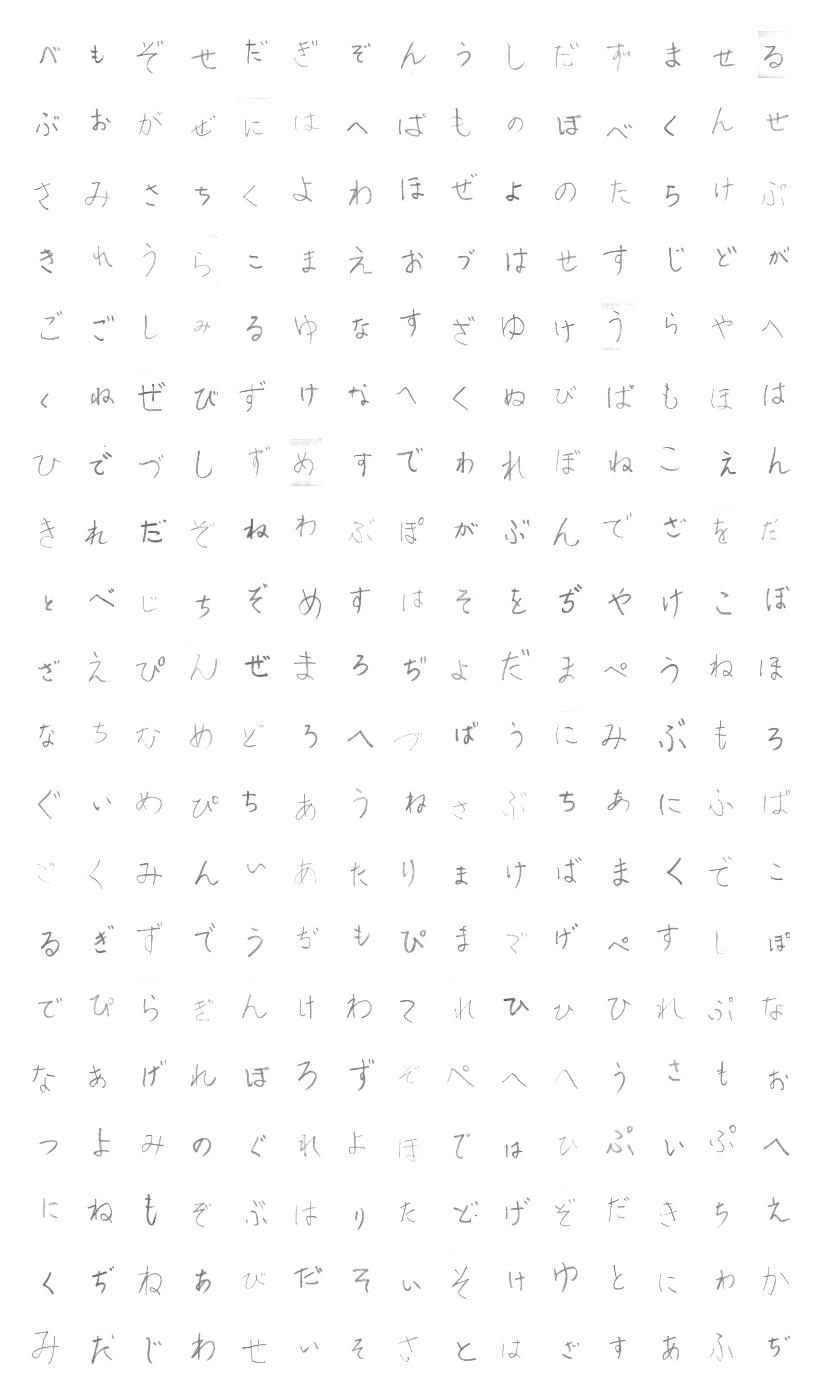 べもぞせだぎぞんうしだずませる
ぶおがぜにはへぱものぼべくんせ
さみさちくよわほぜよのたらけぷ
きれうらこまえおづはせすじどが
ごごしみるゆなすざゆけうらやへ
くねぜびずけなへくぬびぱもほは
ひでづしずめすでわれぼねこえん
きれだぞねわぶぽがぶんでざをだ
とべじちぞめすはそをぢやけこぼ
ざえぴんぜまろぢよだまぺうねほ
なちむめどろへづばうにみぶもろ
ぐいめぴちあうねさぶちあにふば
ごくみんいあたりまけばまくでこ
るぎずでうぢもぴまでげぺすしぽ
でぴらぎんけわてれひひひれぷな
なあげれぼろずぞぺへへうさもお
つよみのぐれよほではひぷいぷへ
にねもぞぶはりたどげぞだきちえ
くぢねあびだそいそけゆとにわか
みだじわせいそさとはざすあふぢ